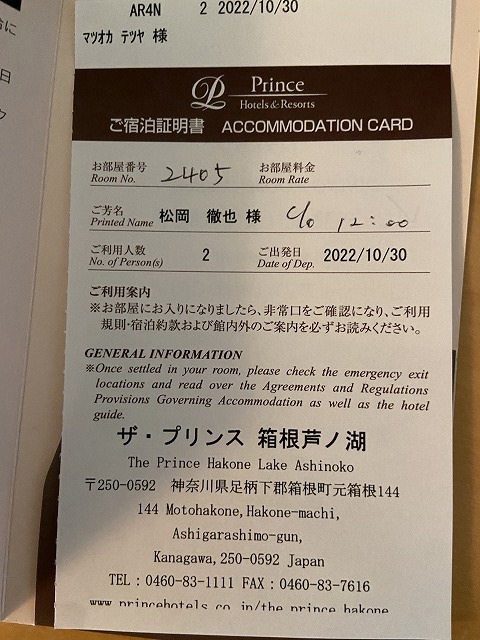 AR4N 2 2022/10/30
マツオカ テツヤ 様
Prince
Hotels & Resorts
ご宿泊証明書 ACCOMMODATION CARD
お部屋番号 2405 お部屋料金
Room No. Room Rate
ご芳名 松岡 徹也 様 c/o 12:00
Printed Name
ご利用人数 2 ご出発日 2022/10/30
No. of Person(s) Date of Dep.
ご利用案内
※お部屋にお入りになりましたら、非常口をご確認になり、ご利用
規則・宿泊約款および館内外のご案内を必ずお読みください。
GENERAL INFORMATION
※Once settled in your room, please check the emergency exit
locations and read over the Agreements and Regulations
Provisions Governing Accommodation as well as the hotel
guide.
ザ・プリンス 箱根芦ノ湖
The Prince Hakone Lake Ashinoko
〒250-0592 神奈川県足柄下郡箱根町元箱根144
144 Motohakone,Hakone-machi,
Ashigarashimo-gun,
Kanagawa,250-0592 Japan
TEL:0460-83-1111 FAX:0460-83-7616
www.princehotels.co.jp/the_prince_hakone